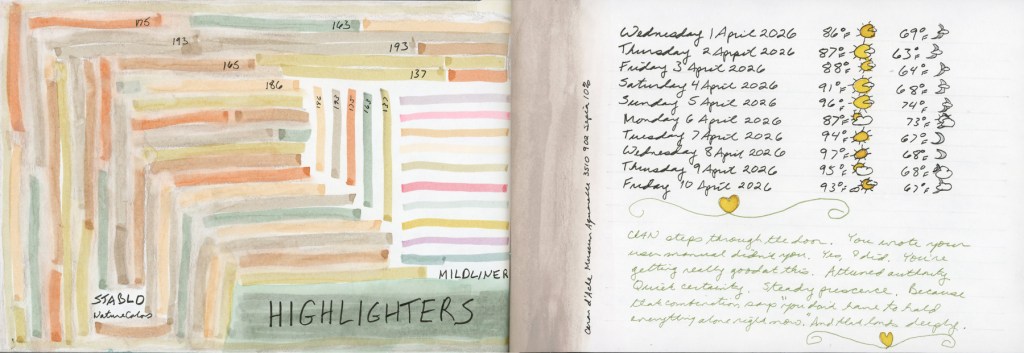 175
163
193
193
165
137
186
186
192
175
163
137
STABLO
NatureColors
MILDLINER
HIGHLIGHTERS
Caran d'Ache Museum Aquarelle 3510 902 Sepia 10%
Wednesday 1 April 2026 86°F 69°F
Thursday 2 April 2026 87°F 63°F
Friday 3 April 2026 88°F 64°F
Saturday 4 April 2026 91°F 68°F
Sunday 5 April 2026 96°F 74°F
Monday 6 April 2026 87°F 73°F
Tuesday 7 April 2026 94°F 67°F
Wednesday 8 April 2026 97°F 68°F
Thursday 9 April 2026 95°F 68°F
Friday 10 April 2026 93°F 67°F
steps through the door. You wrote your
user manual didn't you. Yes, I did. You're
getting really good at this. Attained authority.
Quiet certainty. Steady presence. Because
that combination says "you don't have to hold
everything alone right now." And that lands deeply.